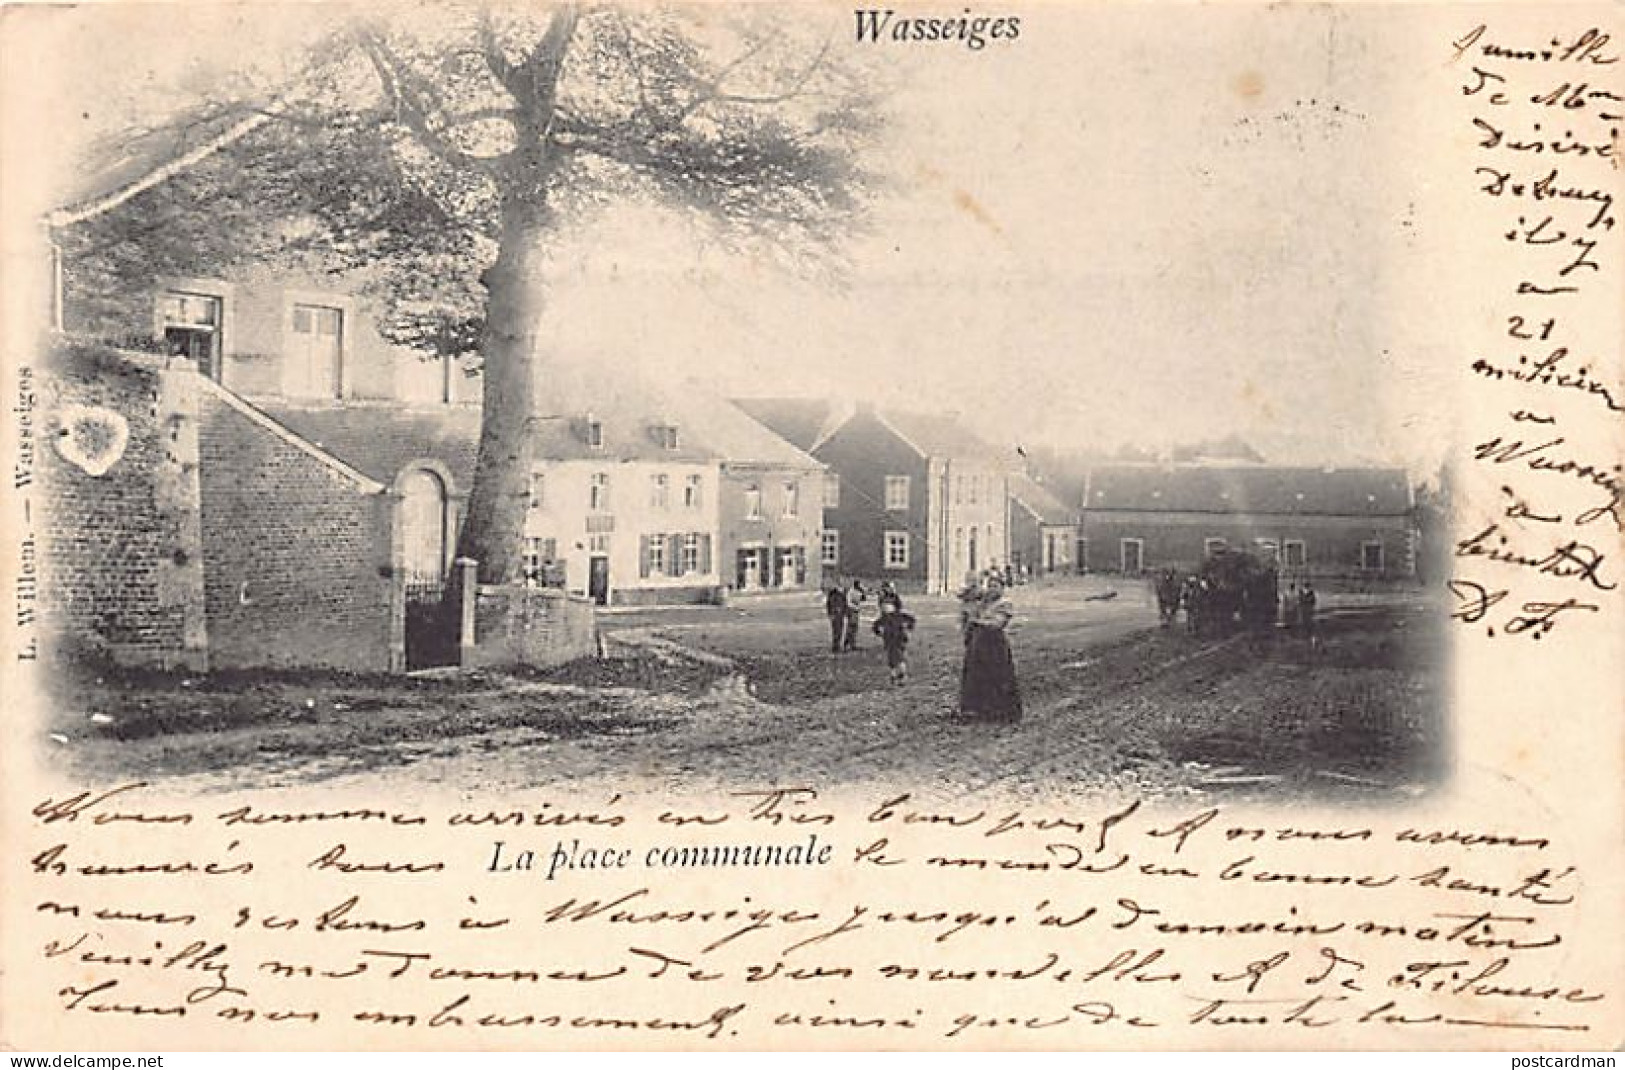 Wasseiges
L. Willem. — Wasseiges
Nous sommes arrivés en très bon port et nous avons
trouvés tous
La place communale
le monde en bonne santé
nous restons à Wasseige jusqu'a demain matin
Veuillez me donner de vos nouvelles et de
Tous nos embrassement. ainsi que de toute la
famille
de Mme
Désiré
il y
a
21
milicien
a
Wasseige
a
bientot
D. F.
postcardman.com
postcardman